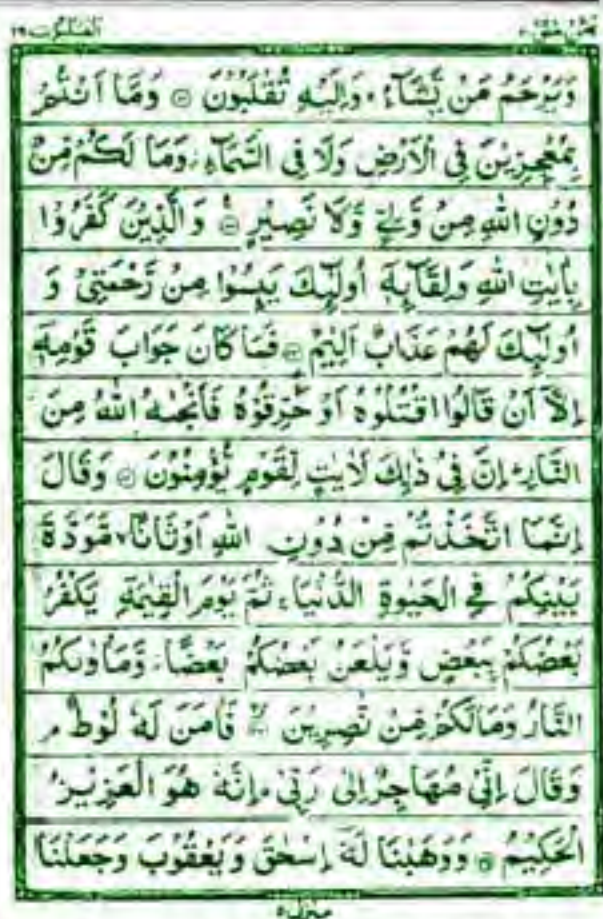 العنكبوت ٢٩
وَيَرْحَمُ مَنْ يَّشَآءُ ۚ وَاِلَيْهِ تُقْلَبُوْنَ ۝ وَمَآ اَنْتُمْ
بِمُعْجِزِيْنَ فِى الْاَرْضِ وَلَا فِى السَّمَآءِ ؗ وَمَا لَكُمْ مِّنْ
دُوْنِ اللّٰهِ مِنْ وَّلِىٍّ وَّلَا نَصِيْرٍ ۝ وَالَّذِيْنَ كَفَرُوْا
بِاٰيٰتِ اللّٰهِ وَلِقَآئِهٖٓ اُولٰٓئِكَ يَئِسُوْا مِنْ رَّحْمَتِىْ وَ
اُولٰٓئِكَ لَهُمْ عَذَابٌ اَلِيْمٌ ۝ فَمَا كَانَ جَوَابَ قَوْمِهٖٓ
اِلَّآ اَنْ قَالُوا اقْتُلُوْهُ اَوْ حَرِّقُوْهُ فَاَنْجٰىهُ اللّٰهُ مِنَ
النَّارِ ؕ اِنَّ فِىْ ذٰلِكَ لَاٰيٰتٍ لِّقَوْمٍ يُّؤْمِنُوْنَ ۝ وَقَالَ
اِنَّمَا اتَّخَذْتُمْ مِّنْ دُوْنِ اللّٰهِ اَوْثَانًا ۙ مَّوَدَّةَ
بَيْنِكُمْ فِى الْحَيٰوةِ الدُّنْيَا ۚ ثُمَّ يَوْمَ الْقِيٰمَةِ يَكْفُرُ
بَعْضُكُمْ بِبَعْضٍ وَّيَلْعَنُ بَعْضُكُمْ بَعْضًا ؗ وَّمَاْوٰىكُمُ
النَّارُ وَمَا لَكُمْ مِّنْ نّٰصِرِيْنَ ۝ فَاٰمَنَ لَهٗ لُوْطٌ ۘ
وَقَالَ اِنِّىْ مُهَاجِرٌ اِلٰى رَبِّىْ ؕ اِنَّهٗ هُوَ الْعَزِيْزُ
الْحَكِيْمُ ۝ وَوَهَبْنَا لَهٗٓ اِسْحٰقَ وَيَعْقُوْبَ وَجَعَلْنَا
منزل ٥